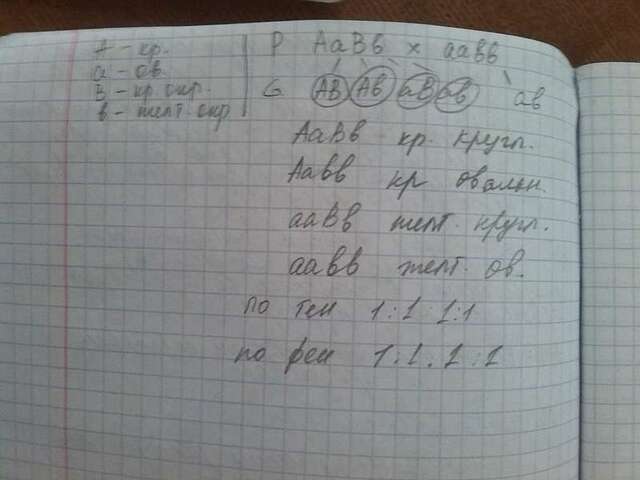 А - кр.
а - ов.
В - кр. окр.
в - желт. окр
P АаВв х аавв
G АВ Ав аВ ав ав
АаВв кр. кругл.
Аавв кр овальн.
ааВв желт. кругл.
аавв желт. ов.
по ген 1:1 1:1
по фен 1:1.1:1